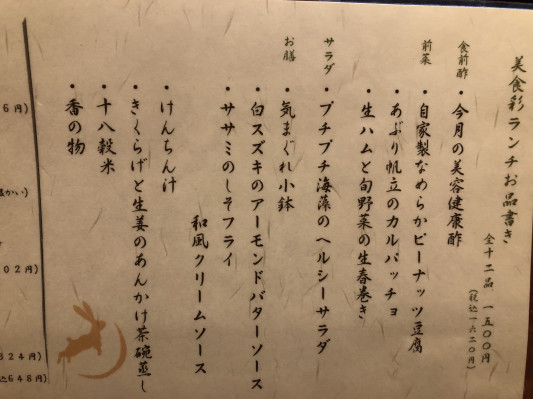 美食彩ランチお品書き
全十二品 一五〇〇円
(税込一六二〇円)
食前酢
・今月の美容健康酢
前菜
・自家製なめらかピーナッツ豆腐
・あぶり帆立のカルパッチョ
・生ハムと旬野菜の生春巻き
サラダ
・プチプチ海藻のヘルシーサラダ
お膳
・気まぐれ小鉢
・白スズキのアーモンドバターソース
・ササミのしそフライ
和風クリームソース
・けんちん汁
・きくらげと生姜のあんかけ茶碗蒸し
・十八穀米
・香の物
６円)
０２円)
３２４円)
６４８円)